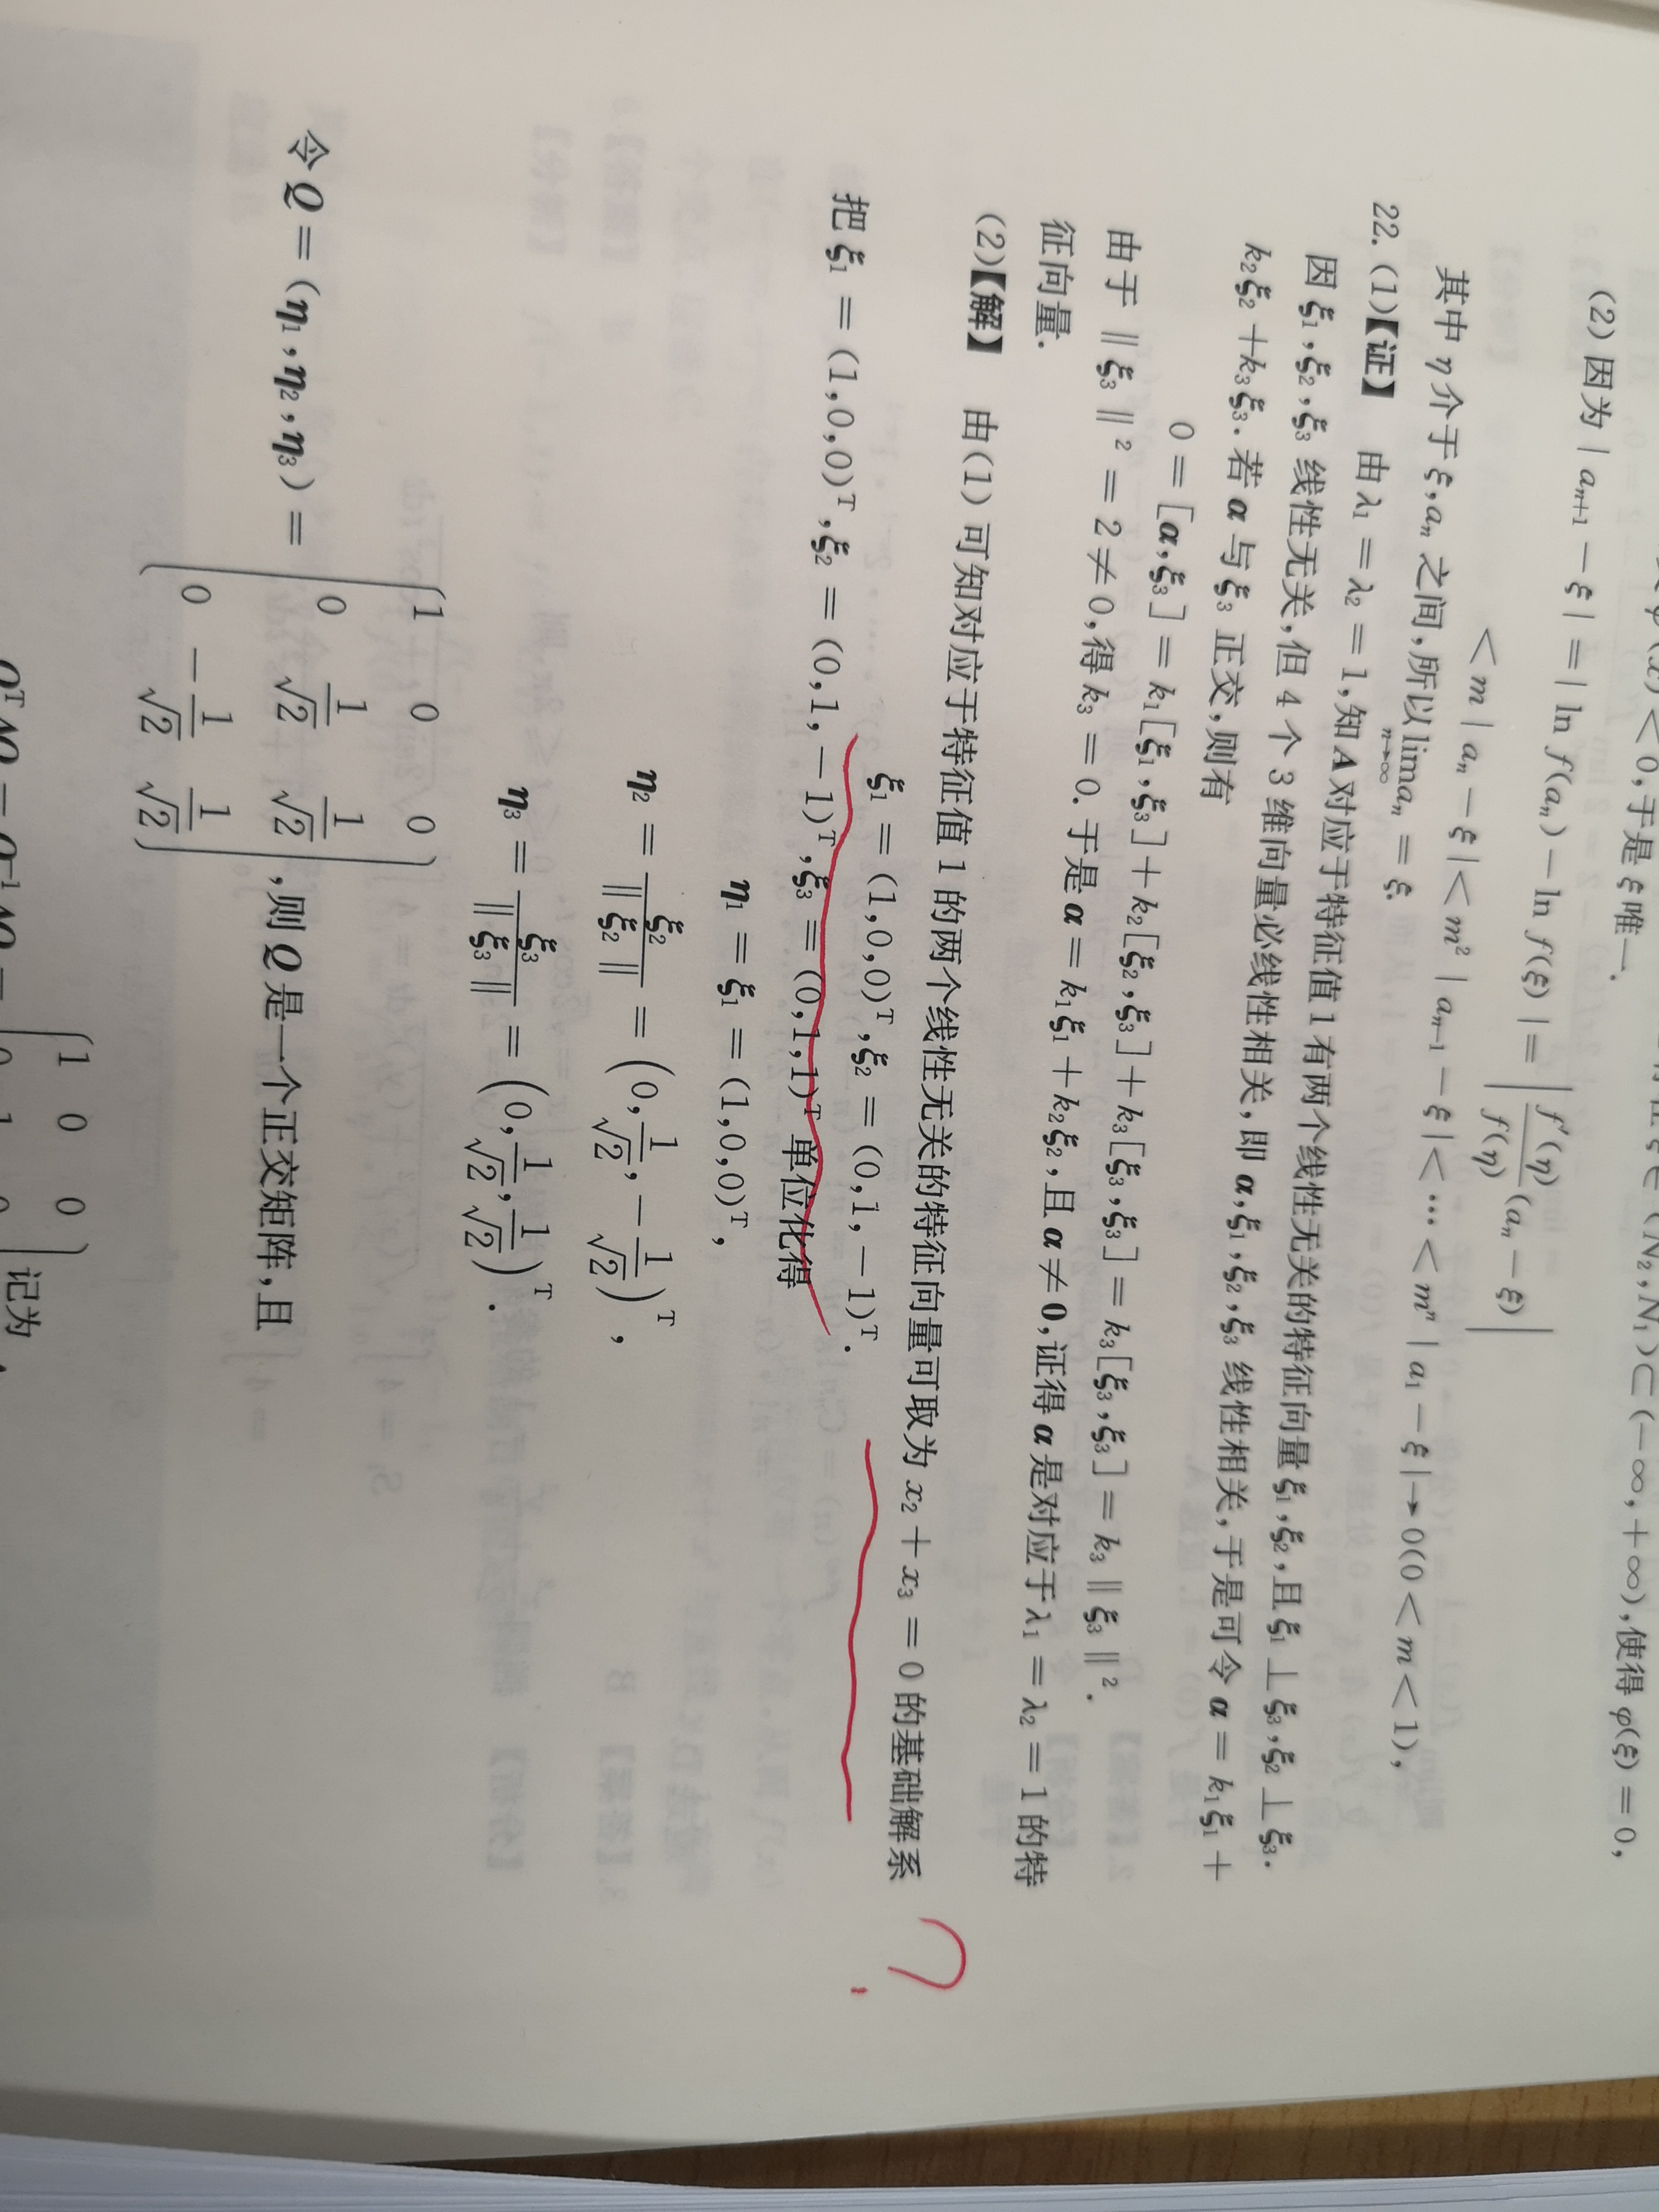 (x) < 0,于是 ξ 唯一.
(2) 因为 | aₙ₊₁ − ξ | = | ln f(aₙ) − ln f(ξ) | = | f′(η)/f(η) (aₙ − ξ) |
< m | aₙ − ξ | < m² | aₙ₋₁ − ξ | < ⋯ < mⁿ | a₁ − ξ | → 0(0 < m < 1),
其中 η 介于 ξ,aₙ 之间,所以 lim_{n→∞} aₙ = ξ.
22. (1)【证】 由 λ₁ = λ₂ = 1,知 A 对应于特征值 1 有两个线性无关的特征向量 ξ₁,ξ₂,且 ξ₁ ⊥ ξ₃,ξ₂ ⊥ ξ₃.
因 ξ₁,ξ₂,ξ₃ 线性无关,但 4 个 3 维向量必线性相关,即 α,ξ₁,ξ₂,ξ₃ 线性相关,于是可令 α = k₁ξ₁ +
k₂ξ₂ + k₃ξ₃. 若 α 与 ξ₃ 正交,则有
0 = [α,ξ₃] = k₁[ξ₁,ξ₃] + k₂[ξ₂,ξ₃] + k₃[ξ₃,ξ₃] = k₃[ξ₃,ξ₃] = k₃ ‖ ξ₃ ‖².
由于 ‖ ξ₃ ‖² = 2 ≠ 0,得 k₃ = 0. 于是 α = k₁ξ₁ + k₂ξ₂,且 α ≠ 0,证得 α 是对应于 λ₁ = λ₂ = 1 的特
征向量.
(2)【解】 由(1) 可知对应于特征值 1 的两个线性无关的特征向量可取为 x₂ + x₃ = 0 的基础解系
ξ₁ = (1,0,0)ᵀ,ξ₂ = (0,1,−1)ᵀ.
?
把 ξ₁ = (1,0,0)ᵀ,ξ₂ = (0,1,−1)ᵀ,ξ₃ = (0,1,1)ᵀ 单位化得
η₁ = ξ₁ = (1,0,0)ᵀ,
η₂ = ξ₂/‖ ξ₂ ‖ = (0, 1/√2, −1/√2)ᵀ,
η₃ = ξ₃/‖ ξ₃ ‖ = (0, 1/√2, 1/√2)ᵀ.
1 0 0
令 Q = (η₁,η₂,η₃) = 0 1/√2 1/√2 ,则 Q 是一个正交矩阵,且
0 −1/√2 1/√2
1 0 0
记为